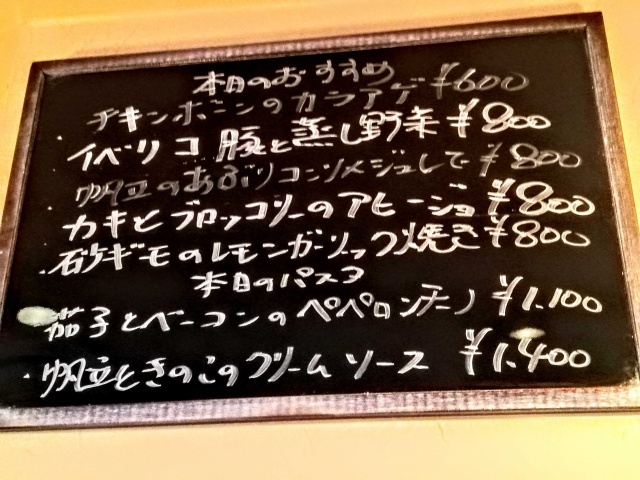 本日のおすすめ
チキンボーンのカラアゲ ¥600
イベリコ豚と蒸し野菜 ¥800
帆立のあぶりコンソメジュレで ¥800
カキとブロッコリーのアヒージョ ¥800
砂ギモのレモンガーリック焼き ¥800
本日のパスタ
茄子とベーコンのペペロンチーノ ¥1.100
帆立ときのこのクリームソース ¥1.400